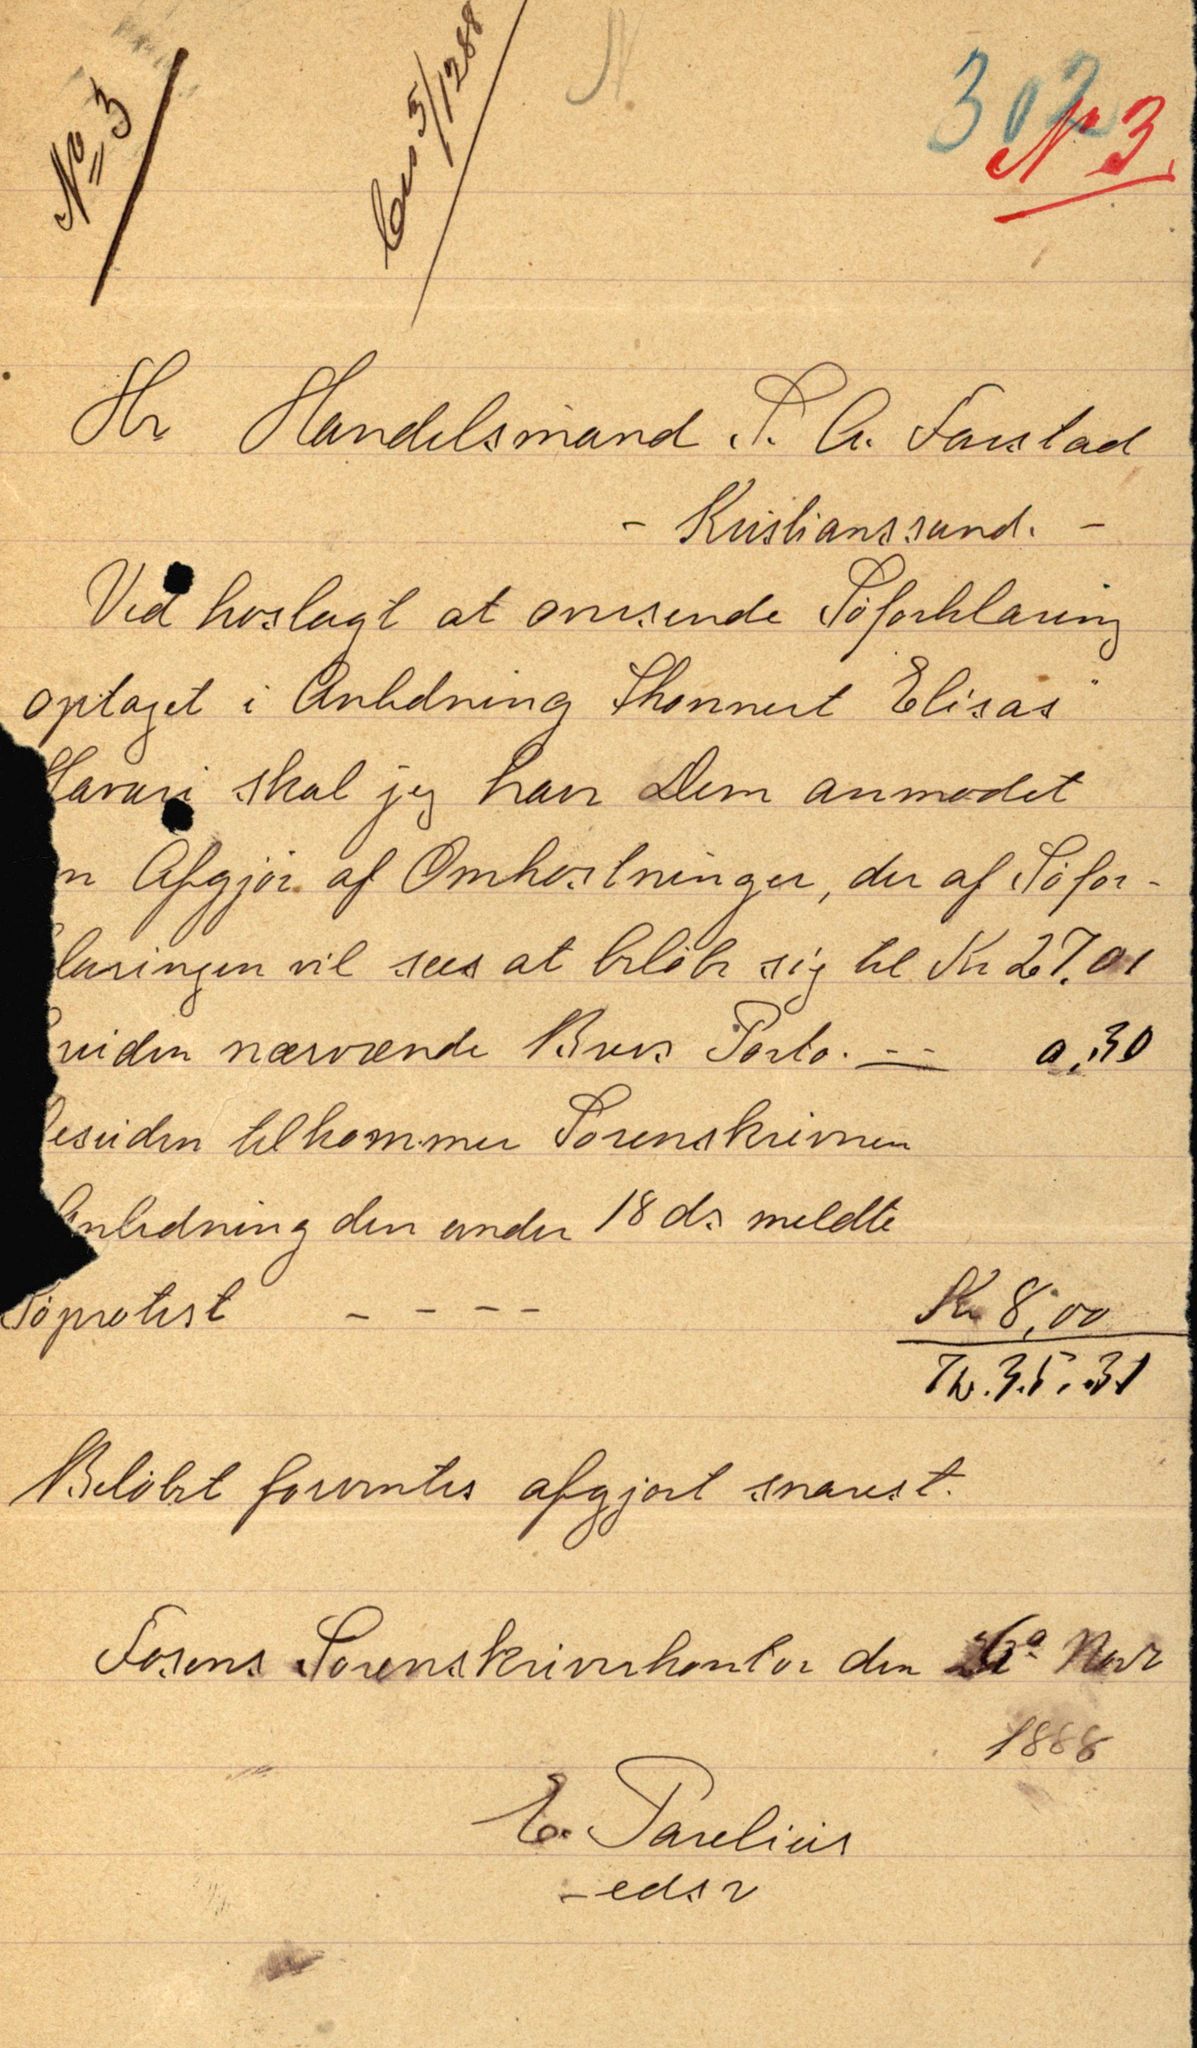 No 3
5/12 88
302
N 3.
Hr Handelsmand S. A. Farstad
- Kristianssund. -
Ved hoslagt at oversende Söforklaring
optaget i Anledning Skonnert "Elisas"
Havari skal jeg have Dem anmodet
Afgjör af Omkostninger, der af Söfor-
klaringen vil sees at belöbe sig til Kr 27,01
nærværende Brevs Porto. - - 0,30
Desuden tilkommer Sorenskriveren
Anledning den under 18 ds meldte
Söprotest - - - - Kr 8,00
Kr. 35.31
Belöbet forventes afgjort snarest.
Fosens Sorenskriverkontor den Novbr
1888
E. Parelius
- edsv